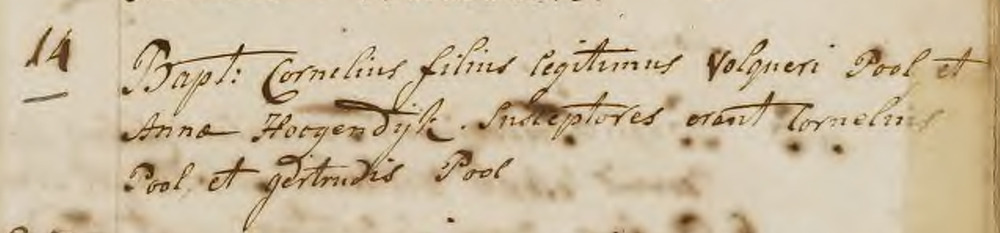 14 Bapt: Cornelius filius legitimus Volqueri Pool et
Annæ Hoogendijk. Susceptores erant Cornelius
Pool, et gertrudis Pool